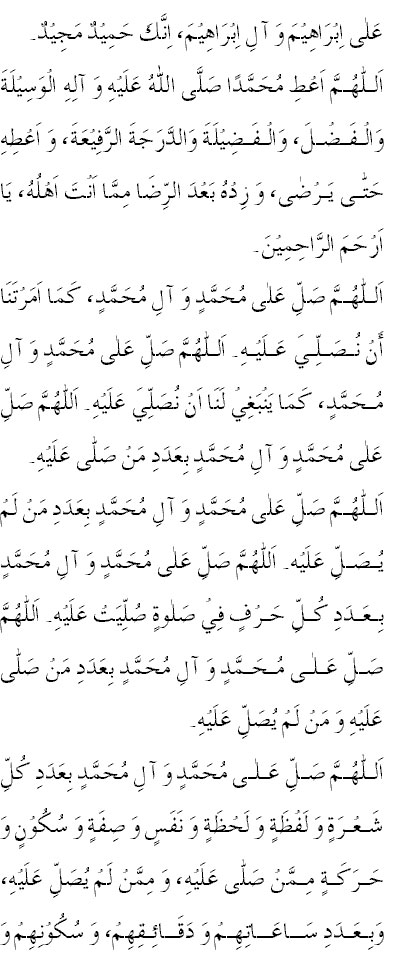 عَلٰى اِبْرَاهِيْمَ وَ آلِ اِبْرَاهِيْمَ، اِنَّكَ حَمِيْدٌ مَجِيْدٌ۔
اَللّٰهُمَّ اَعْطِ مُحَمَّدًا صَلَّى اللّٰهُ عَلَيْهِ وَ آلِهِ الْوَسِيْلَةَ
وَالْفَضْلَ، وَالْفَضِيْلَةَ وَالدَّرَجَةَ الرَّفِيْعَةَ، وَ اَعْطِهِ
حَتّٰى يَرْضٰى، وَ زِدْهُ بَعْدَ الرِّضَا مِمَّا اَنْتَ اَهْلُهُ، يَا
اَرْحَمَ الرَّاحِمِيْنَ۔
اَللّٰهُمَّ صَلِّ عَلٰى مُحَمَّدٍ وَ آلِ مُحَمَّدٍ، كَمَا اَمَرْتَنَا
أَنْ نُصَلِّيَ عَلَيْهِ۔ اَللّٰهُمَّ صَلِّ عَلٰى مُحَمَّدٍ وَ آلِ
مُحَمَّدٍ، كَمَا يَنْبَغِيْ لَنَا اَنْ نُصَلِّيَ عَلَيْهِ۔ اَللّٰهُمَّ صَلِّ
عَلٰى مُحَمَّدٍ وَ آلِ مُحَمَّدٍ بِعَدَدِ مَنْ صَلّٰى عَلَيْهِ۔
اَللّٰهُمَّ صَلِّ عَلٰى مُحَمَّدٍ وَ آلِ مُحَمَّدٍ بِعَدَدِ مَنْ لَمْ
يُصَلِّ عَلَيْهِ۔ اَللّٰهُمَّ صَلِّ عَلٰى مُحَمَّدٍ وَ آلِ مُحَمَّدٍ
بِعَدَدِ كُلِّ حَرْفٍ فِيْ صَلٰوةٍ صُلِّيَتْ عَلَيْهِ۔ اَللّٰهُمَّ
صَلِّ عَلٰى مُحَمَّدٍ وَ آلِ مُحَمَّدٍ بِعَدَدِ مَنْ صَلّٰى
عَلَيْهِ وَ مَنْ لَمْ يُصَلِّ عَلَيْهِ۔
اَللّٰهُمَّ صَلِّ عَلٰى مُحَمَّدٍ وَ آلِ مُحَمَّدٍ بِعَدَدِ كُلِّ
شَعْرَةٍ وَ لَفْظَةٍ وَ لَحْظَةٍ وَ نَفَسٍ وَ صِفَةٍ وَ سُكُوْنٍ وَ
حَرَكَةٍ مِمَّنْ صَلّٰى عَلَيْهِ، وَ مِمَّنْ لَمْ يُصَلِّ عَلَيْهِ،
وَبِعَدَدِ سَاعَاتِهِمْ وَ دَقَائِقِهِمْ، وَ سُكُوْنِهِمْ وَ